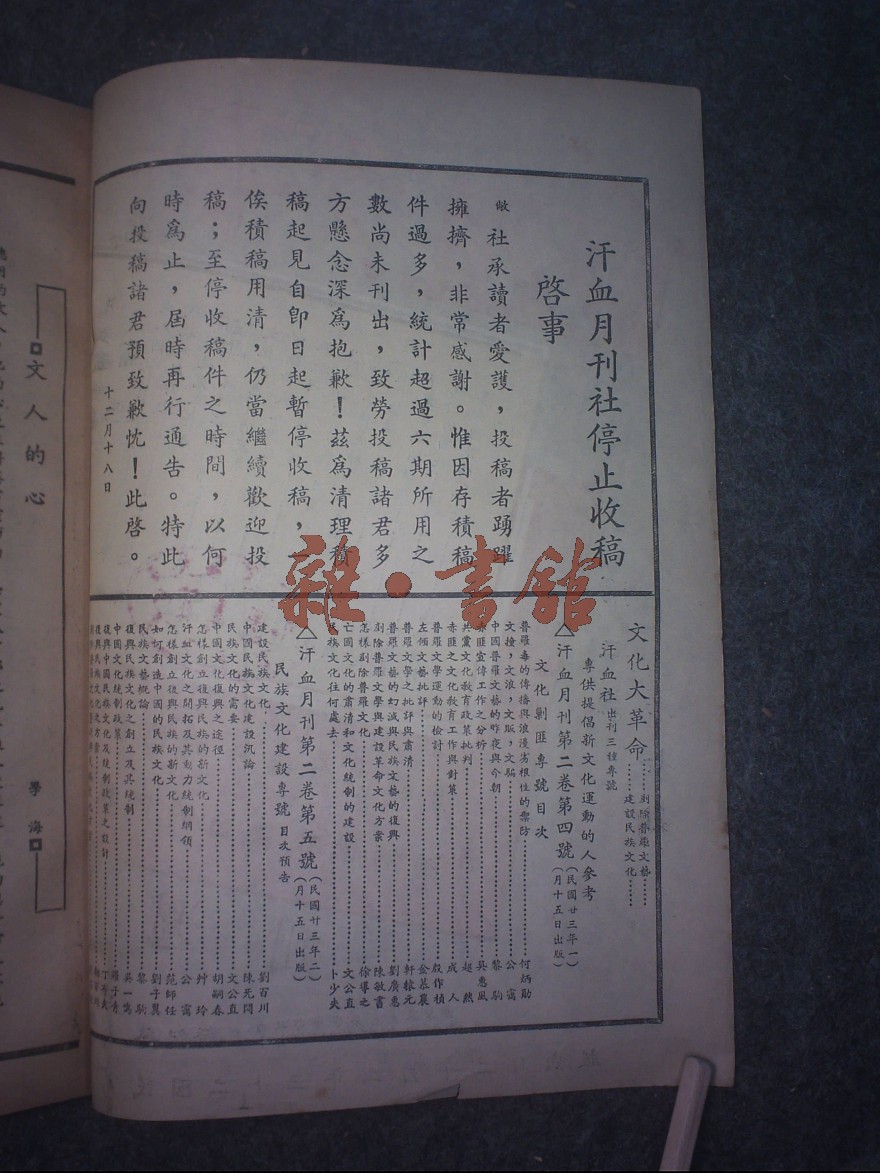 汗血月刊社停止收稿
啓事
敝社承讀者愛護，投稿者踴躍
擁擠，非常感謝。惟因存積稿
件過多，統計超過六期所用之
數尚未刊出，致勞投稿諸君多
方懸念深爲抱歉！茲爲清理積
稿起見自卽日起暫停收稿，一
俟積稿用清，仍當繼續歡迎投
稿；至停收稿件之時間，以何
時爲止，屆時再行通告。特此
向投稿諸君預致歉忱！此啓。
十二月十八日
文化大革命……剷除普羅文藝……
建設民族文化
汗血社出刊三種專號
專供提倡新文化運動的人參考
△汗血月刊第二卷第四號（民國廿三年一月十五日出版）
文化剿匪專號目次
普羅毒的傳播與浪漫劣根性的禦防……何炳勛
文搜，文浪，文販，文騙……公寗
中國普羅文藝的昨夜與今朝……黎駒
赤匪宣傳工作之分析……吳惠風
共黨文化教育政策批判……超然
赤匪之文化教育工作與對策……成人
普羅文學運動的檢討……殷作楨
左傾文藝批評……金慕農
普羅文學之批評與肅清……軒轅元
普羅文藝的幻滅與民族文藝的復興……劉廣惠
剷除普羅文學與建設革命文化方案……陳敏書
怎樣剷除普羅文化……徐導之
亡國文化的肅清和文化統制的建設……文公直
民族文化往何處去……卜少夫
△汗血月刊第二卷第五號（民國廿三年二月十五日出版）
民族文化建設專號目次預告
建設民族文化……劉百川
中國民族文化建設汎論……陳光問
民族文化的需要……文公直
中國文化復興之途徑……胡嗣春
怎樣創立復興民族的新文化……艸玲
汗血文化之開拓及其動力統制綱領……公寗
怎樣創立復興民族的新文化……范師任
如何創造中國的民族文化……劉子翼
民族文藝概論……黎駒
復興民族文化之創立及其統制……吳一鳴
中國文化統制政策……子青
復興中國民族文化及統制政策之設計……丁
文人的心
學海
雜·書舘